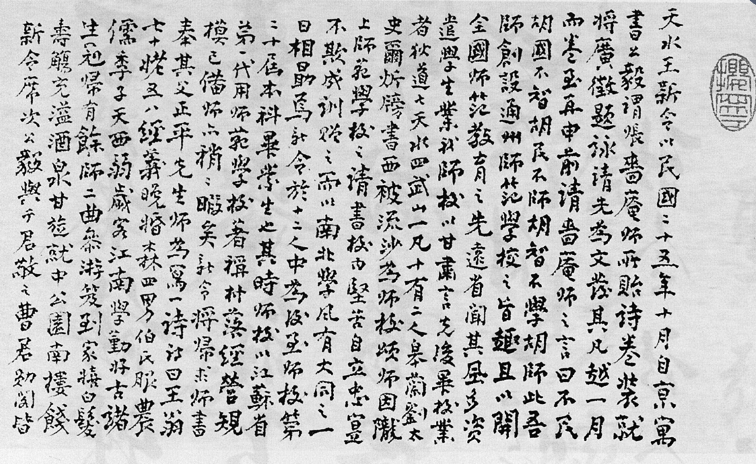 天水王新令以民國二十五年十月自京寓
書公毅謂悵嗇庵師所貽詩卷裝就
將廣徵題詠請先為文發其凡越一月
而卷至再申前請嗇庵師之言曰不民
胡國不智胡民不師胡智不學胡師此吾
師創設通州師范學校之旨趣且以開
全國師范教育之先遠省聞其風多資
遣學生業我師校以甘肅言先後畢校業
者狄道七天水四武山一凡十有二人皋蘭劉太
史爾炘牓書西被流沙為師校頌師因隴
上師范學校之請書校內堅苦自立忠寔
不欺成訓貽之而以南北學風有大同之一
日相勗焉新令於十二人中為後至師校第
二十屆本科畢業生也其時師校以江蘇省
第一代用師范學校著稱村落經營規
模已備師亦稍稍暇矣新令將歸求師書
奉其父正平先生師為寫一詩詩曰王翁
七十五八經義晚婚森四男伯氏服農
儒季子天西弱歲客江南學勤好古諸
生冠歸有餘師二曲參游笈到家梅白髮
壽觴先溢酒泉甘旋就中公園南樓餞
新令席次公毅與于君敬之曹君勛閣皆